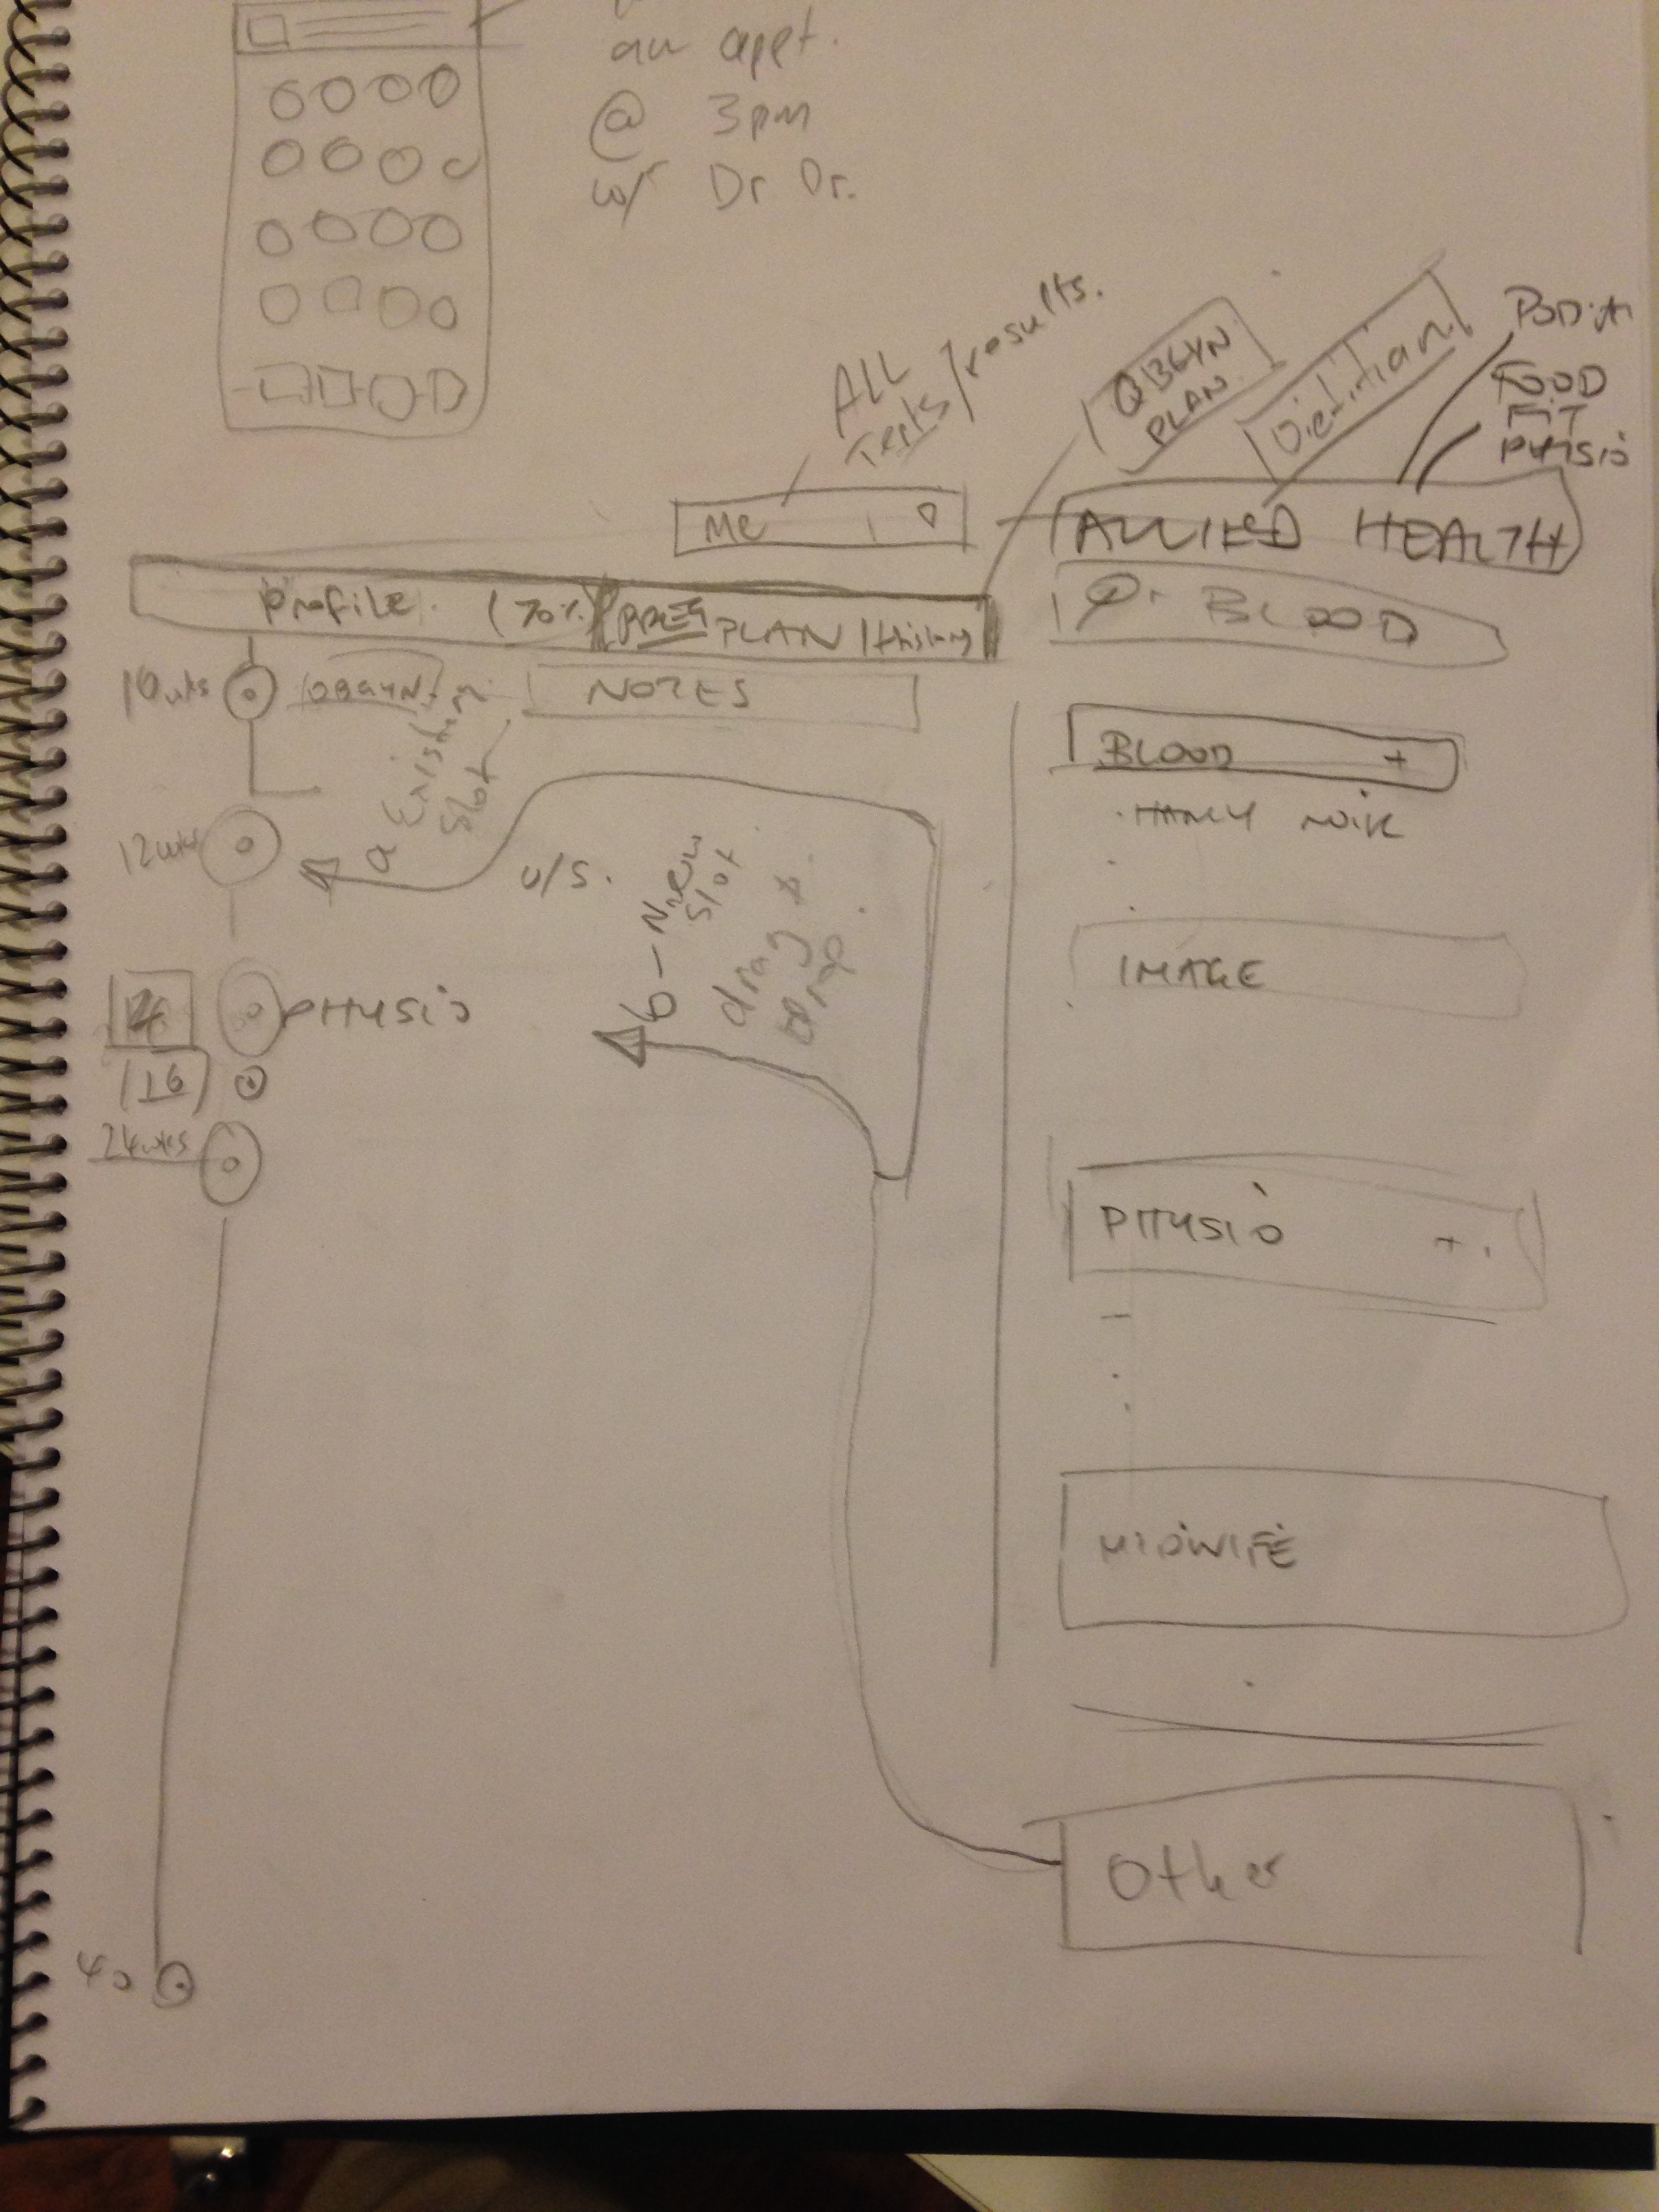 an appt.
@ 3pm
w/ Dr Dr.
ALL
Tests/results.
OBGYN
PLAN
Dietitian
FOOD
FIT
PHYSIO
Me
ALLIED HEALTH
BLOOD
Profile (70%)
PREG PLAN
10wks
OBGYN
NOTES
a Existing
Slot
12wks
u/s.
b - New
slot
drag &
drop.
PHYSIO
16
24wks
40
BLOOD +
IMAGE
PHYSIO +
MIDWIFE
Other